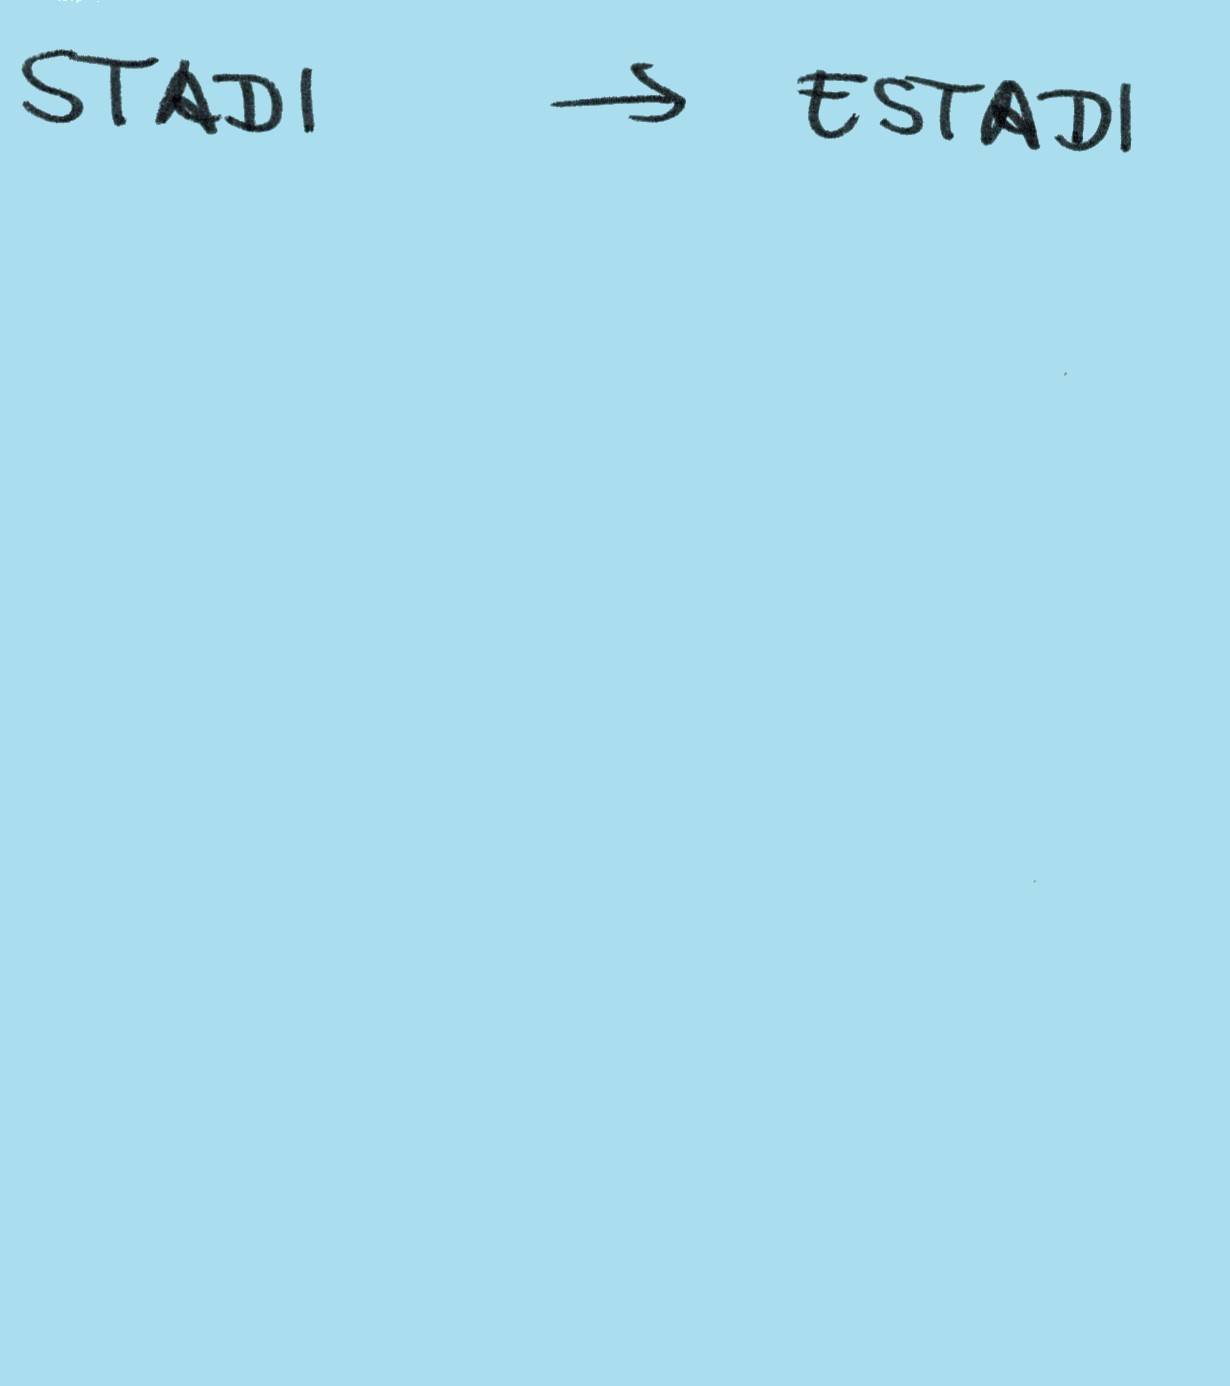 STADI → ESTADI